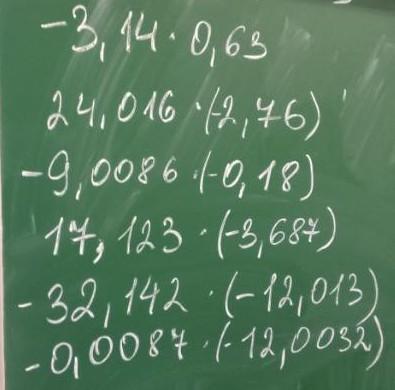 -3,14·0,63
24,016·(-2,76)
-9,0086·(-0,18)
17,123·(-3,687)
-32,142·(-12,013)
-0,0087·(-12,0032)